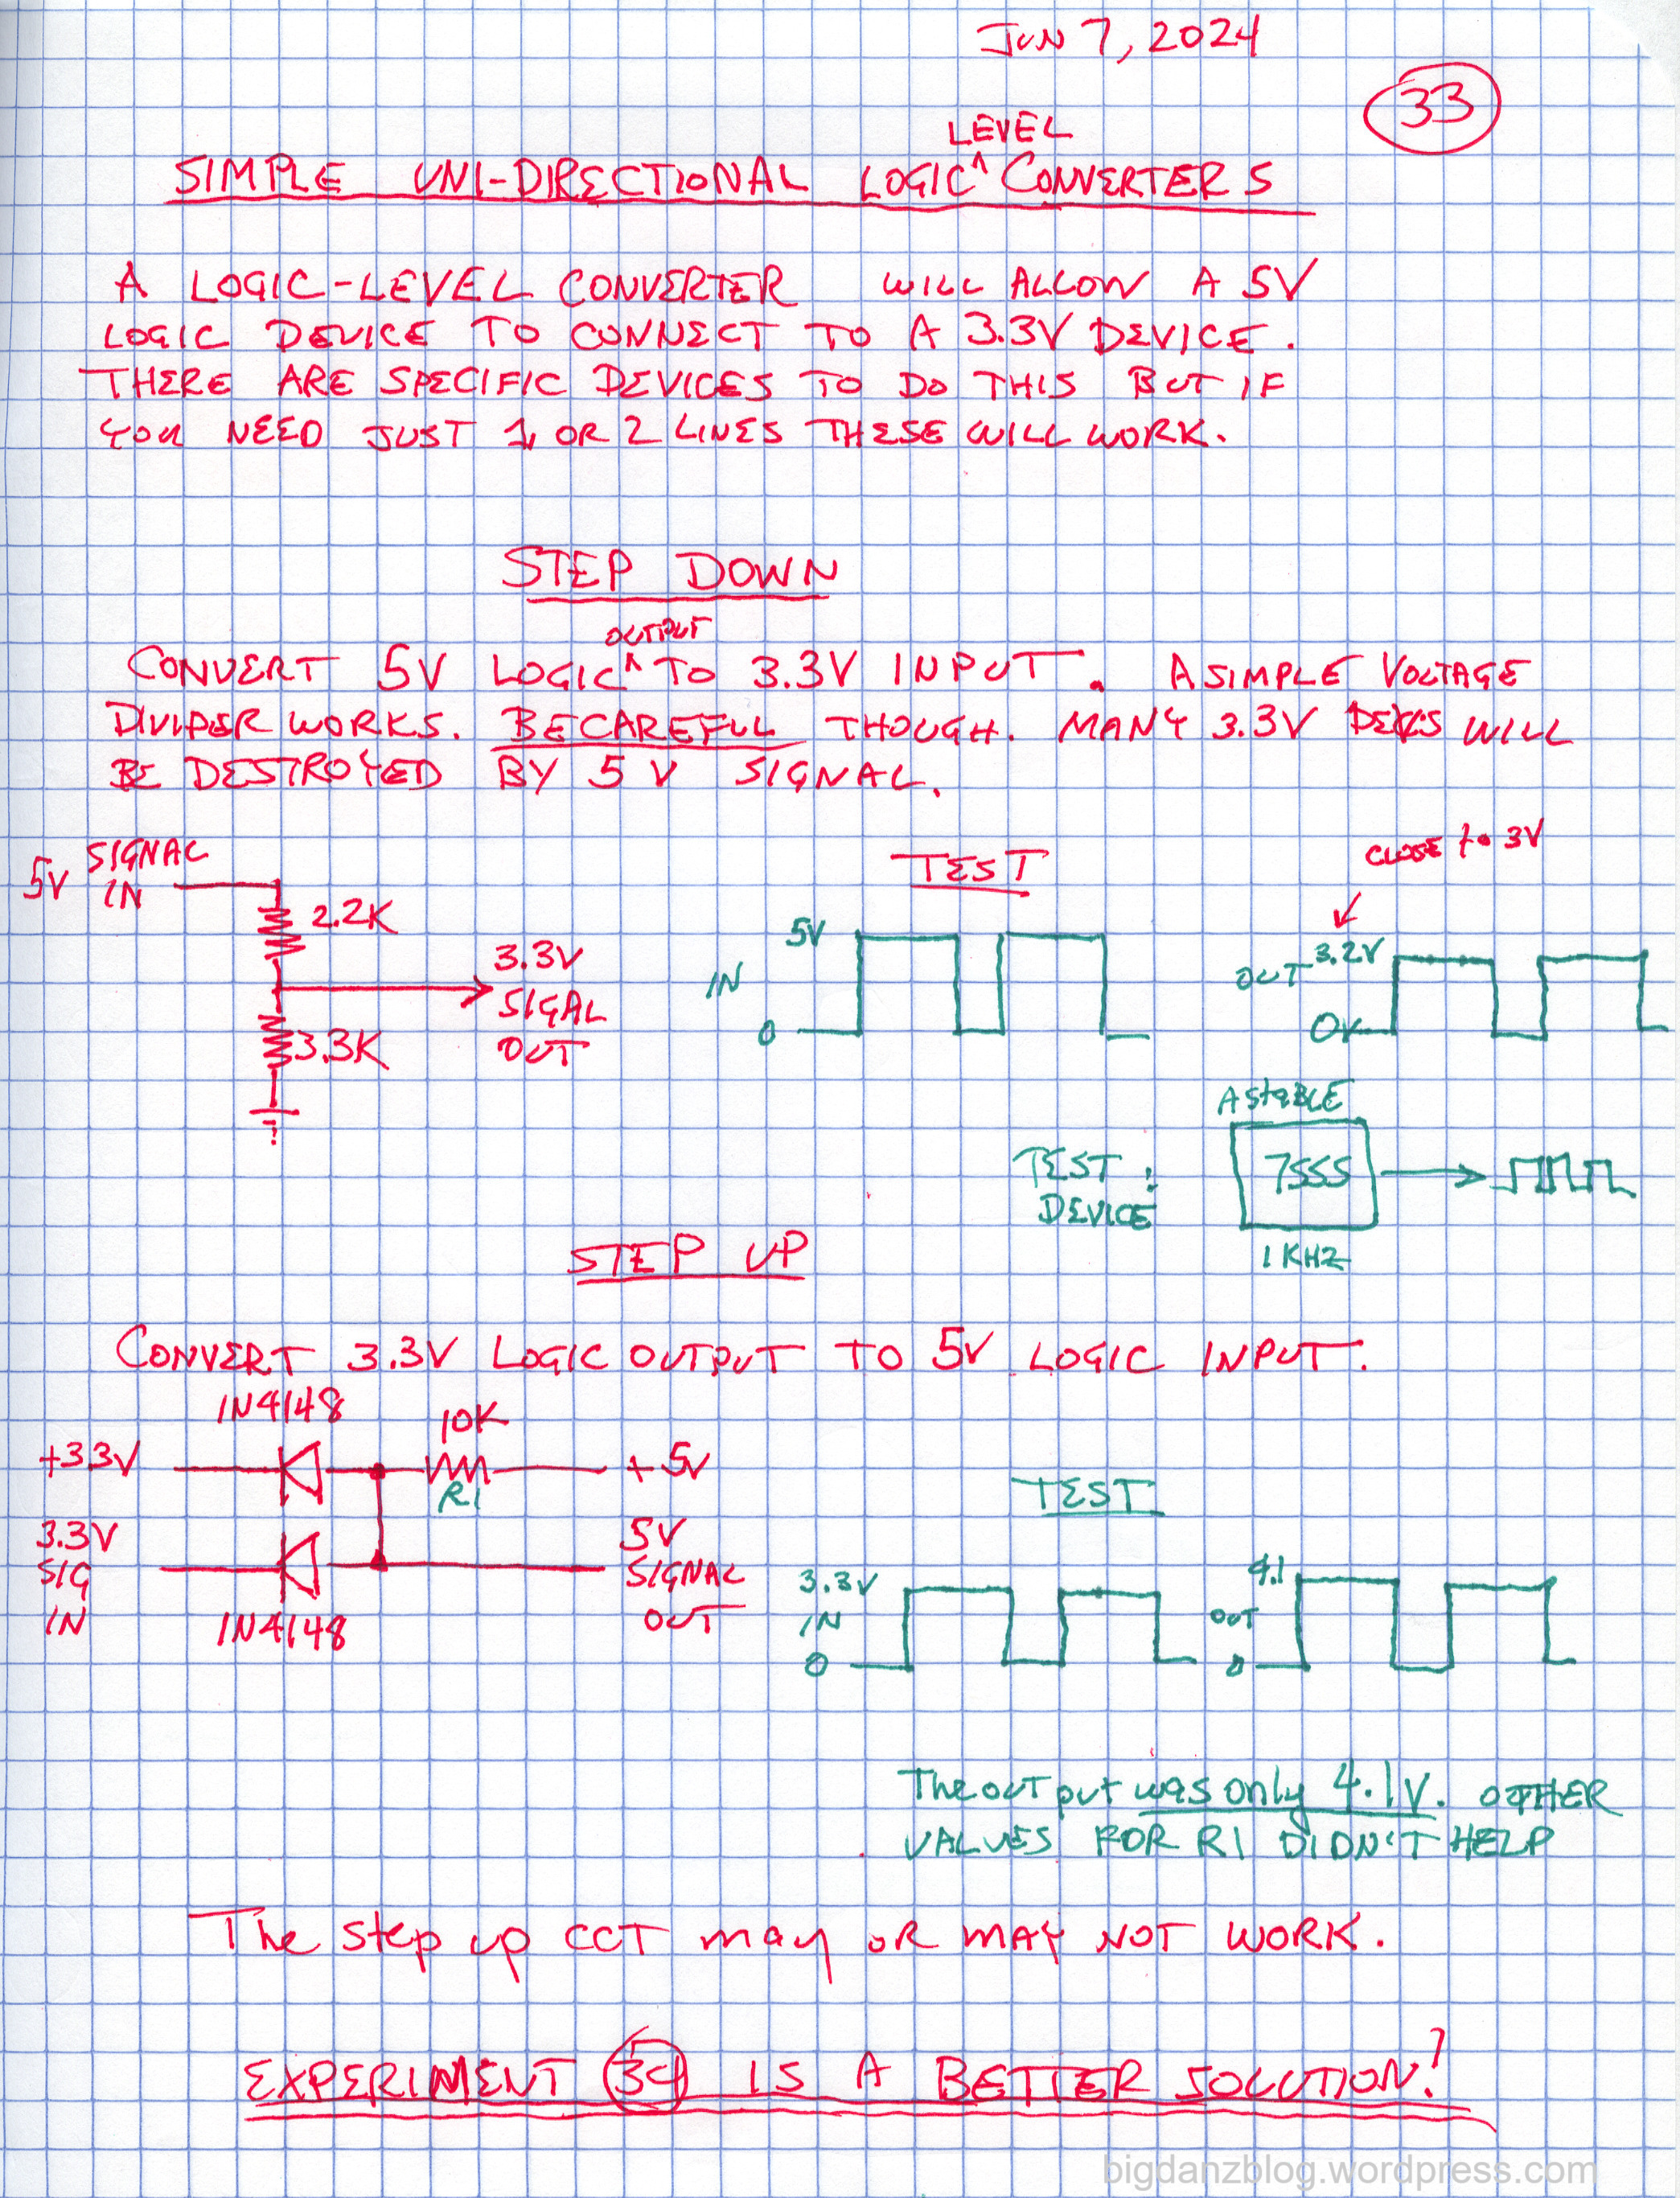 JUN 7, 2024
33
LEVEL
SIMPLE UNI-DIRECTIONAL LOGIC ^ CONVERTERS
A LOGIC-LEVEL CONVERTER WILL ALLOW A 5V
LOGIC DEVICE TO CONNECT TO A 3.3V DEVICE.
THERE ARE SPECIFIC DEVICES TO DO THIS BUT IF
YOU NEED JUST 1 OR 2 LINES THESE WILL WORK.
STEP DOWN
OUTPUT
CONVERT 5V LOGIC ^ TO 3.3V INPUT. A SIMPLE VOLTAGE
DIVIDER WORKS. BE CAREFUL THOUGH. MANY 3.3V WILL
BE DESTROYED BY 5V SIGNAL.
5V SIGNAL IN
2.2K
3.3V
SIGAL
OUT
3.3K
TEST
CLOSE to 3V
5V
IN
0
3.2V
OUT
0V
AStaBLE
TEST :
DEVICE
7555
1KHZ
STEP UP
CONVERT 3.3V LOGIC OUTPUT TO 5V LOGIC INPUT.
1N4148
10K
+3.3V
R1
+5V
3.3V
SIG
IN
1N4148
5V
SIGNAL
OUT
TEST
3.3V
IN
0
4.1
OUT
0
The OUTput was only 4.1V. OTHER
VALUES FOR R1 DIDN'T HELP
The step up CCT may OR MAY NOT WORK.
EXPERIMENT 34 IS A BETTER SOLUTION!
bigdanzblog.wordpress.com